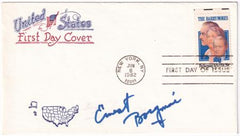 United States
First Day Cover
THE BARRYMORES
NEW YORK, NY
JUN
8
1982
10001
FIRST DAY OF ISSUE
Ernest Borgnine